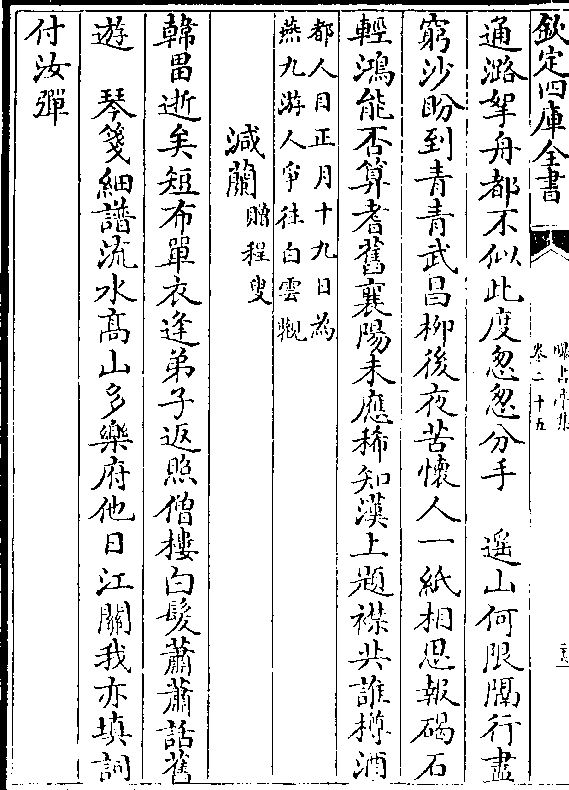 欽定四庫全書
曝書亭集
卷二十五
通潞拏舟都不似此度怱怱分手　遥山何限隔行盡
窮沙盼到青青武昌柳後夜苦懐人一紙相思報碣石
輕鴻能否算耆舊襄陽未應稀知漢上題襟共誰樽酒
都人目正月十九日為
燕九游人爭往白雲觀
減蘭贈程叟
韓畕逝矣短布單衣逢弟子返照僧樓白髮蕭蕭話舊
遊　琴箋細譜流水髙山多樂府他日江關我亦填詞
付汝彈